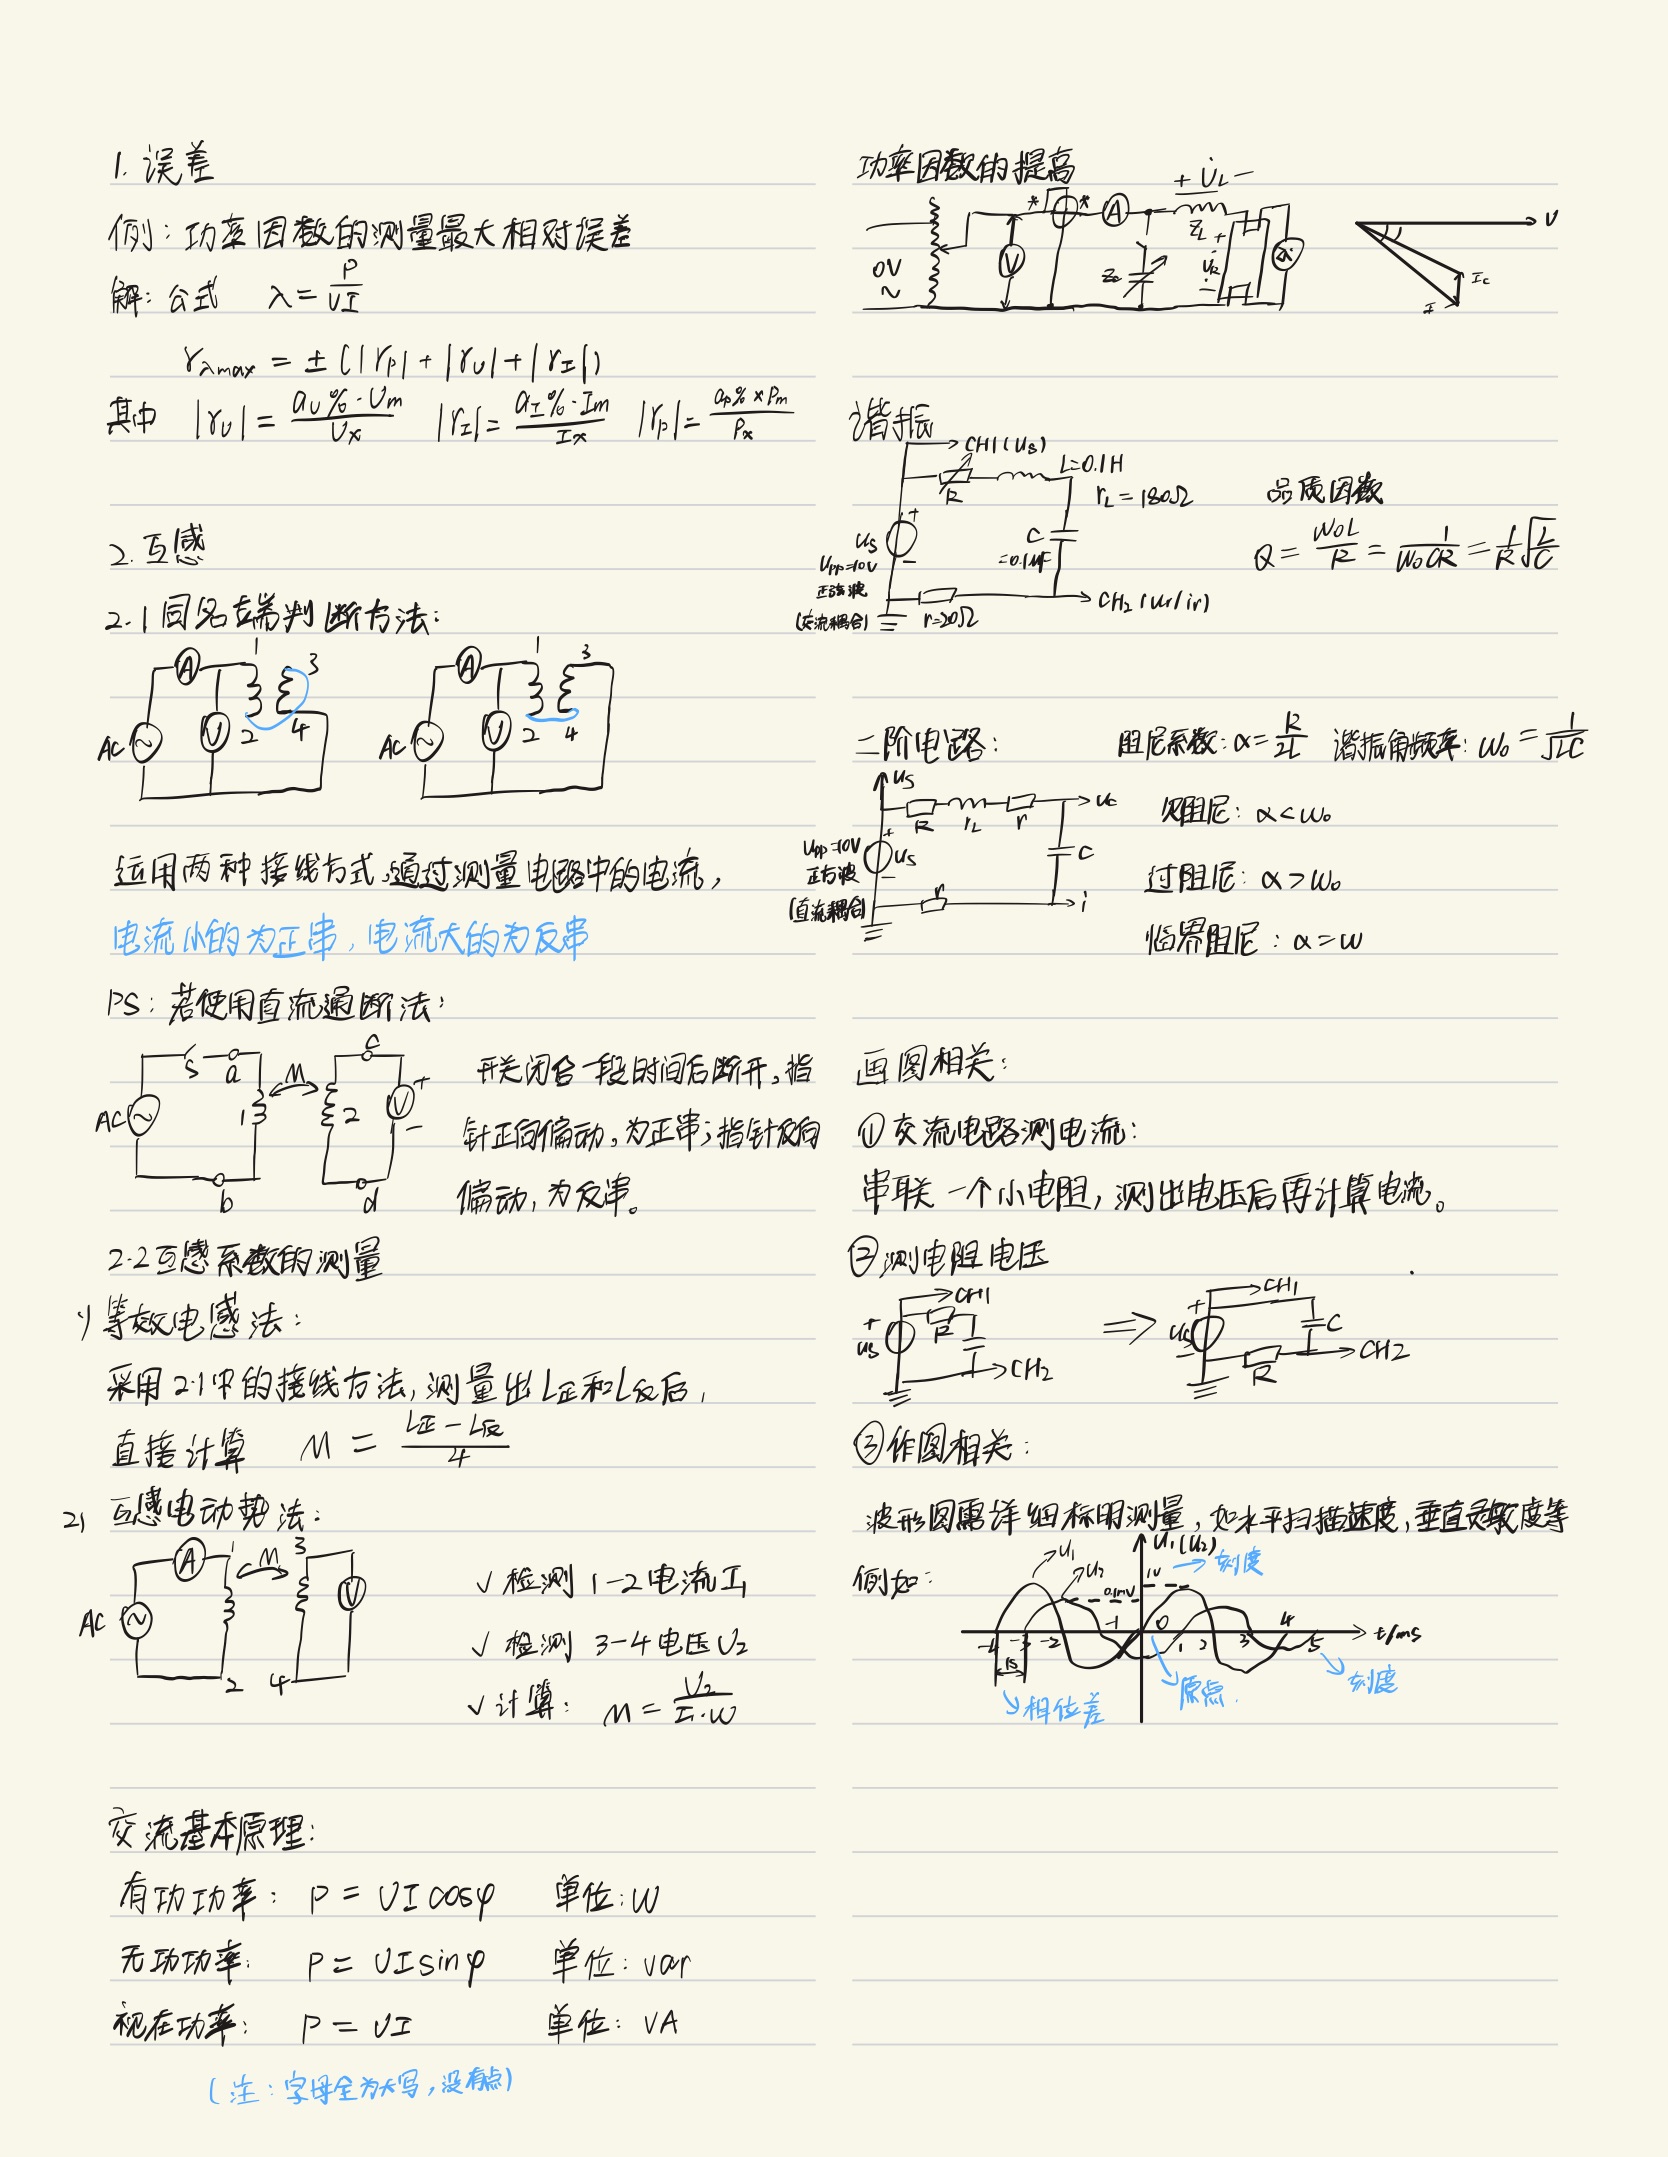 1. 误差
例：功率因数的测量最大相对误差
解：公式 λ = P/UI
γλmax = ±(|γP| + |γU| + |γI|)
其中 |γU| = aU%·Um/Ux |γI| = aI%·Im/Ix |γP| = aP%×Pm/Px
2. 互感
2.1 同名端判断方法：
A 1 3 V 2 4 AC
A 1 3 V 2 4 AC
运用两种接线方式，通过测量电路中的电流，
电流小的为正串，电流大的为反串
PS：若使用直流通断法：
S a M c AC 1 2 V + − b d
开关闭合一段时间后断开，指
针正向偏动，为正串；指针反向
偏动，为反串。
2.2 互感系数的测量
1) 等效电感法：
采用2.1中的接线方法，测量出L正和L反后，
直接计算 M = (L正 − L反)/4
2) 互感电动势法：
A 1 M 3 V AC 2 4
√ 检测 1-2 电流 I1
√ 检测 3-4 电压 U2
√ 计算： M = U2/(I1·W)
交流基本原理：
有功功率： P = UI cosφ 单位：W
无功功率： P = UI sinφ 单位：var
视在功率： P = UI 单位：VA
(注：字母全为大写，没有点)
功率因数的提高
+ U̇L −
* * A ZL
0V ~ V Zc + U̇R −
U Ic I
谐振
CH1(us)
R L=0.1H
rL=180Ω
us + −
Upp=10V
正弦波
(交流耦合)
C
=0.1μF
r=20Ω CH2(ur/ir)
品质因数
Q = W0L/R = 1/W0CR = 1/R √L/C
二阶电路： 阻尼系数：α = R/2L 谐振角频率：ω0 = 1/√LC
us
R rL r uc
Upp=10V
正方波
(直流耦合)
+ us −
C
r i
欠阻尼： α < ω0
过阻尼： α > ω0
临界阻尼： α = ω
画图相关：
① 交流电路测电流：
串联一个小电阻，测出电压后再计算电流。
② 测电阻电压
+ us CH1 R CH2 ⇒ + us − CH1 C R CH2
③ 作图相关：
波形图需详细标明测量，如水平扫描速度，垂直灵敏度等
例如：
u1 u2 u1(u2) 1V → 刻度
0.1mV
-4 -3 -2 -1 0 1 2 3 4 5 t/ms
1s
相位差 原点 刻度